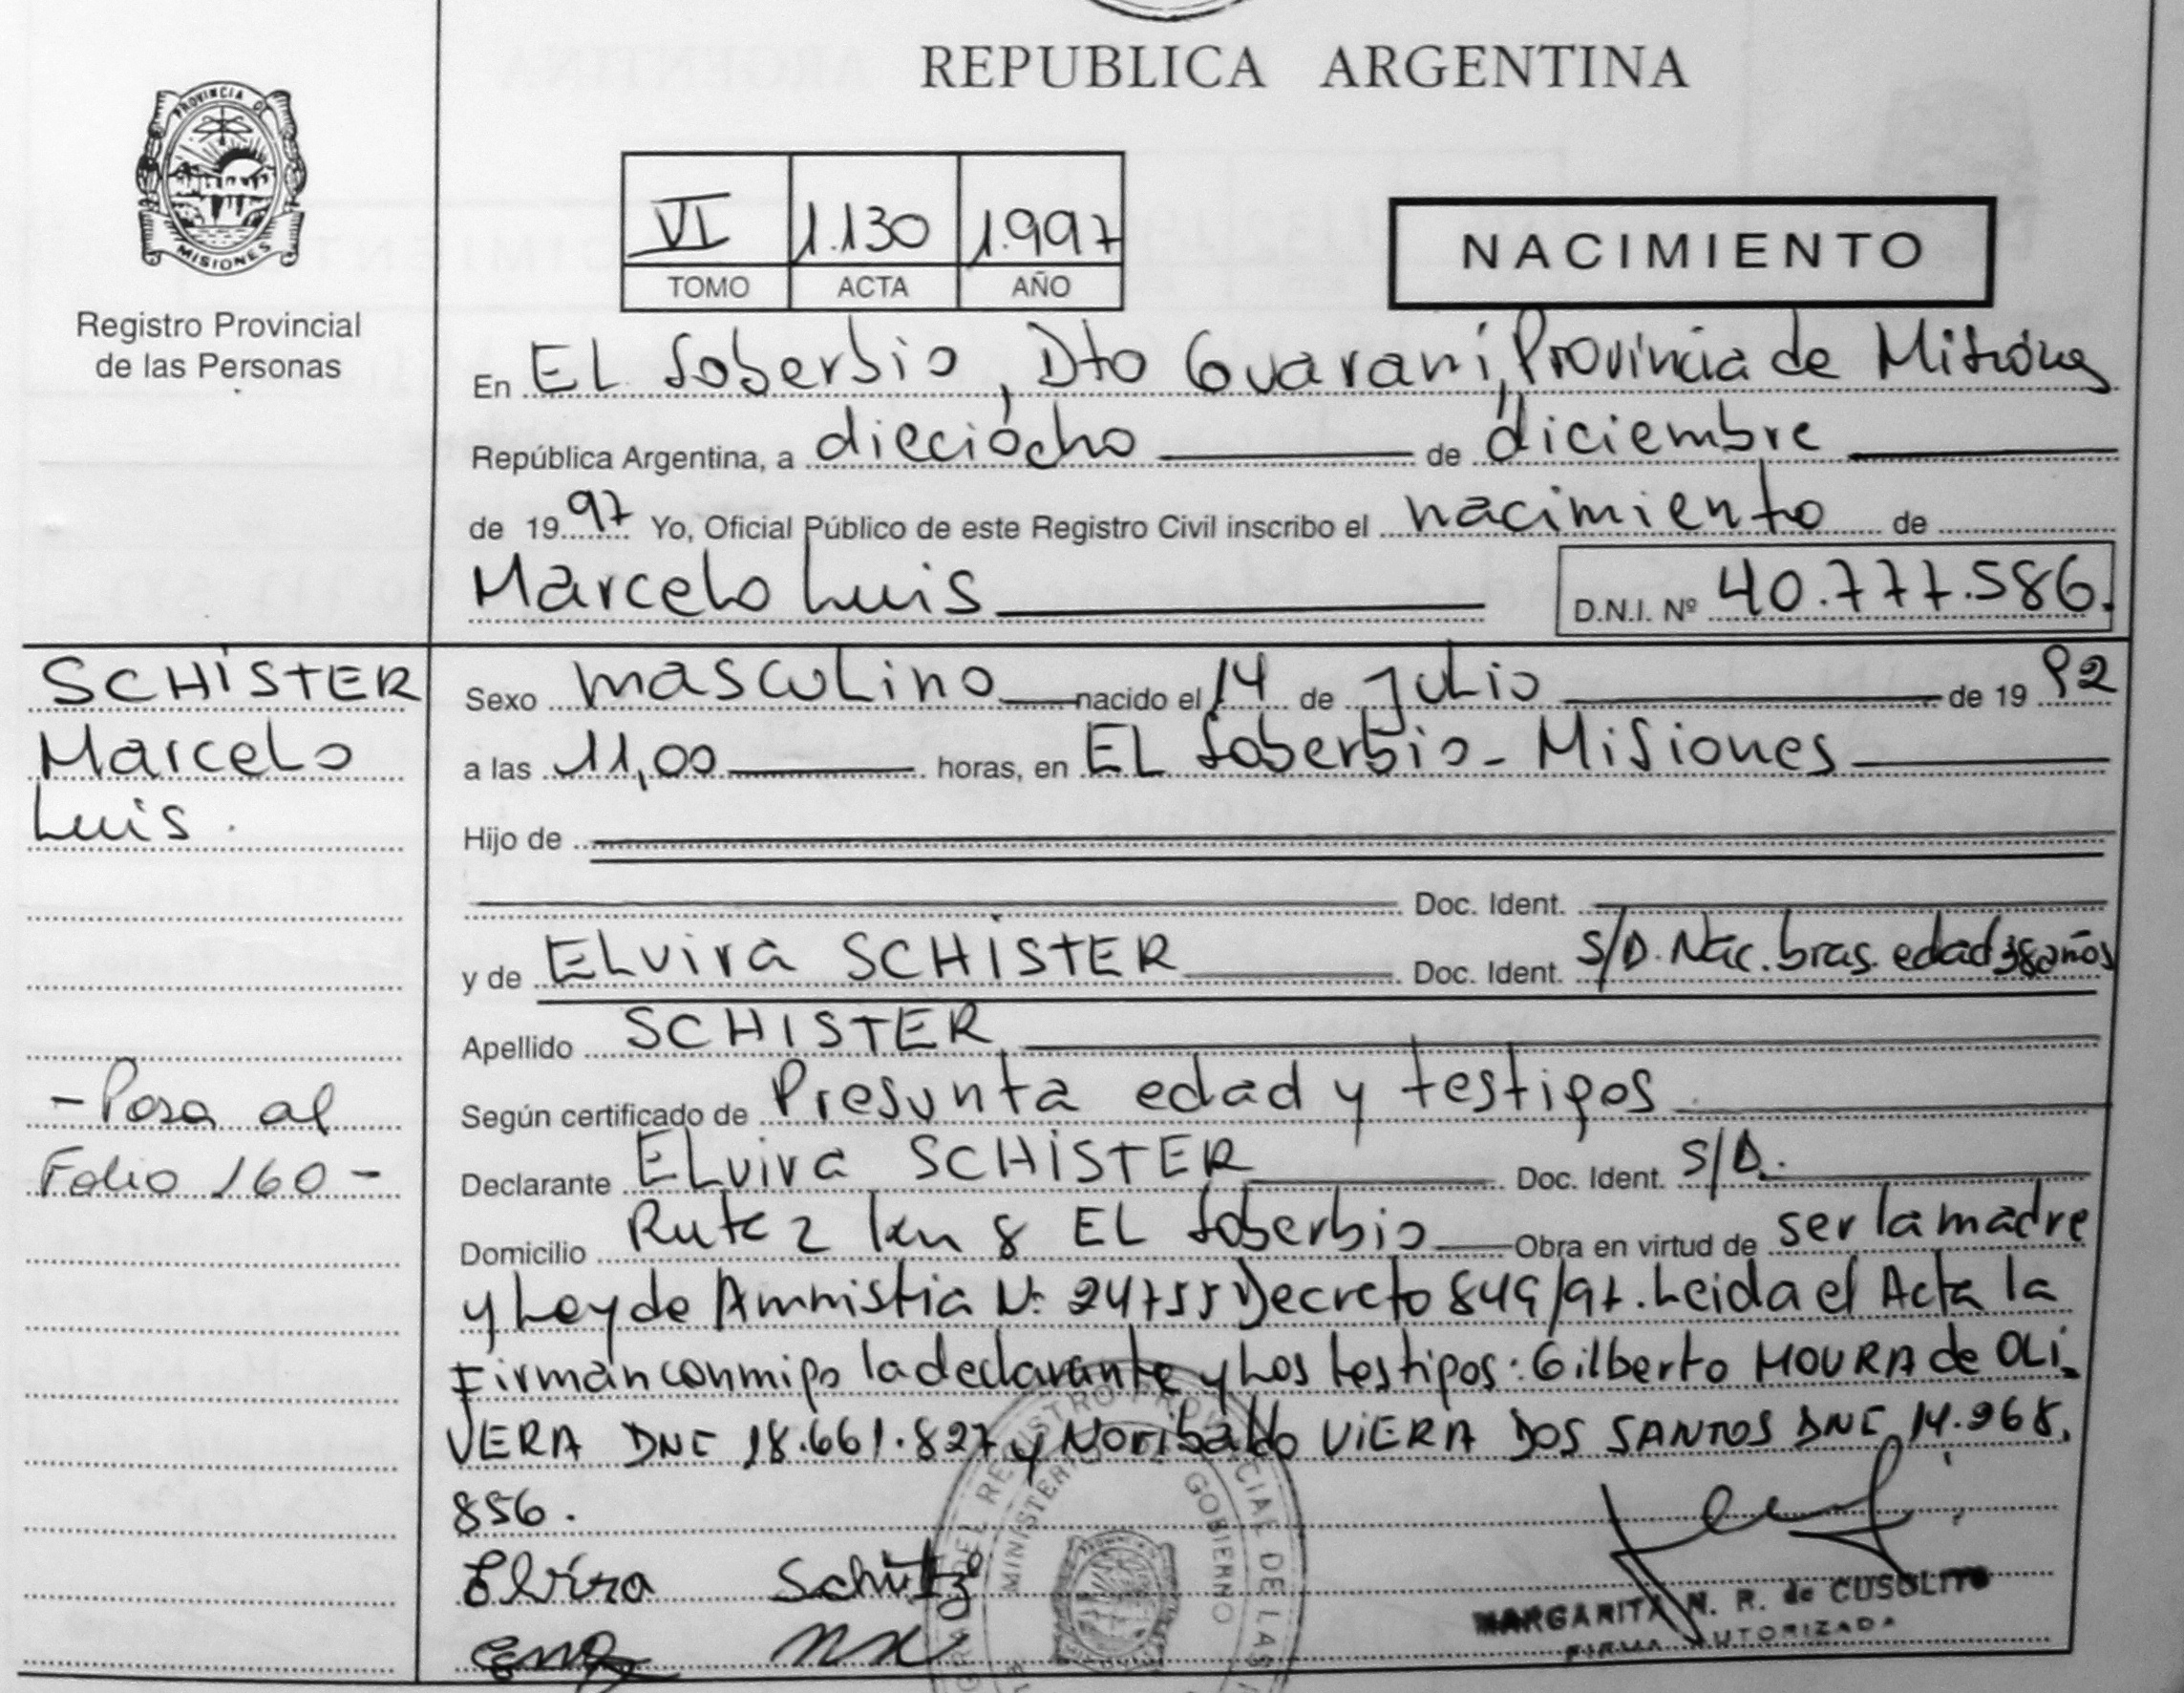 REPUBLICA ARGENTINA
PROVINCIA D
MISIONES
Registro Provincial
de las Personas
VI 1.130 1.997
TOMO ACTA AÑO
NACIMIENTO
En EL Soberbio, Dto Guaraní, Provincia de Misiones
República Argentina, a dieciocho de diciembre
de 19 97 Yo, Oficial Público de este Registro Civil inscribo el nacimiento de
Marcelo Luis D.N.I. Nº 40.777.586.
SCHISTER
Marcelo
Luis.
- Pasa al
Folio 160 -
Sexo masculino nacido el 14 de Julio de 19 92
a las 11,00 horas, en EL Soberbio - Misiones
Hijo de
Doc. Ident.
y de ELvira SCHISTER Doc. Ident. S/D. Nac. bras. edad 38 años
Apellido SCHISTER
Según certificado de Presunta edad y testigos
Declarante ELvira SCHISTER Doc. Ident. S/D.
Domicilio Ruta 2 km 8 EL Soberbio Obra en virtud de ser la madre
y Ley de Amnistia Nº 24755 Decreto 849/97. Leida el Acta la
Firman conmigo la declarante y Los testigos: Gilberto MOURA de OLI-
VERA DNI 18.661.827 y Noribaldo VIERA DOS SANTOS DNI 14.968.
856.
Elvira
MARGARITA N. R. de CUSOLITO
FIRMA AUTORIZADA
REGISTRO PROVINCIAL DE LAS
MINISTERIO GOBIERNO